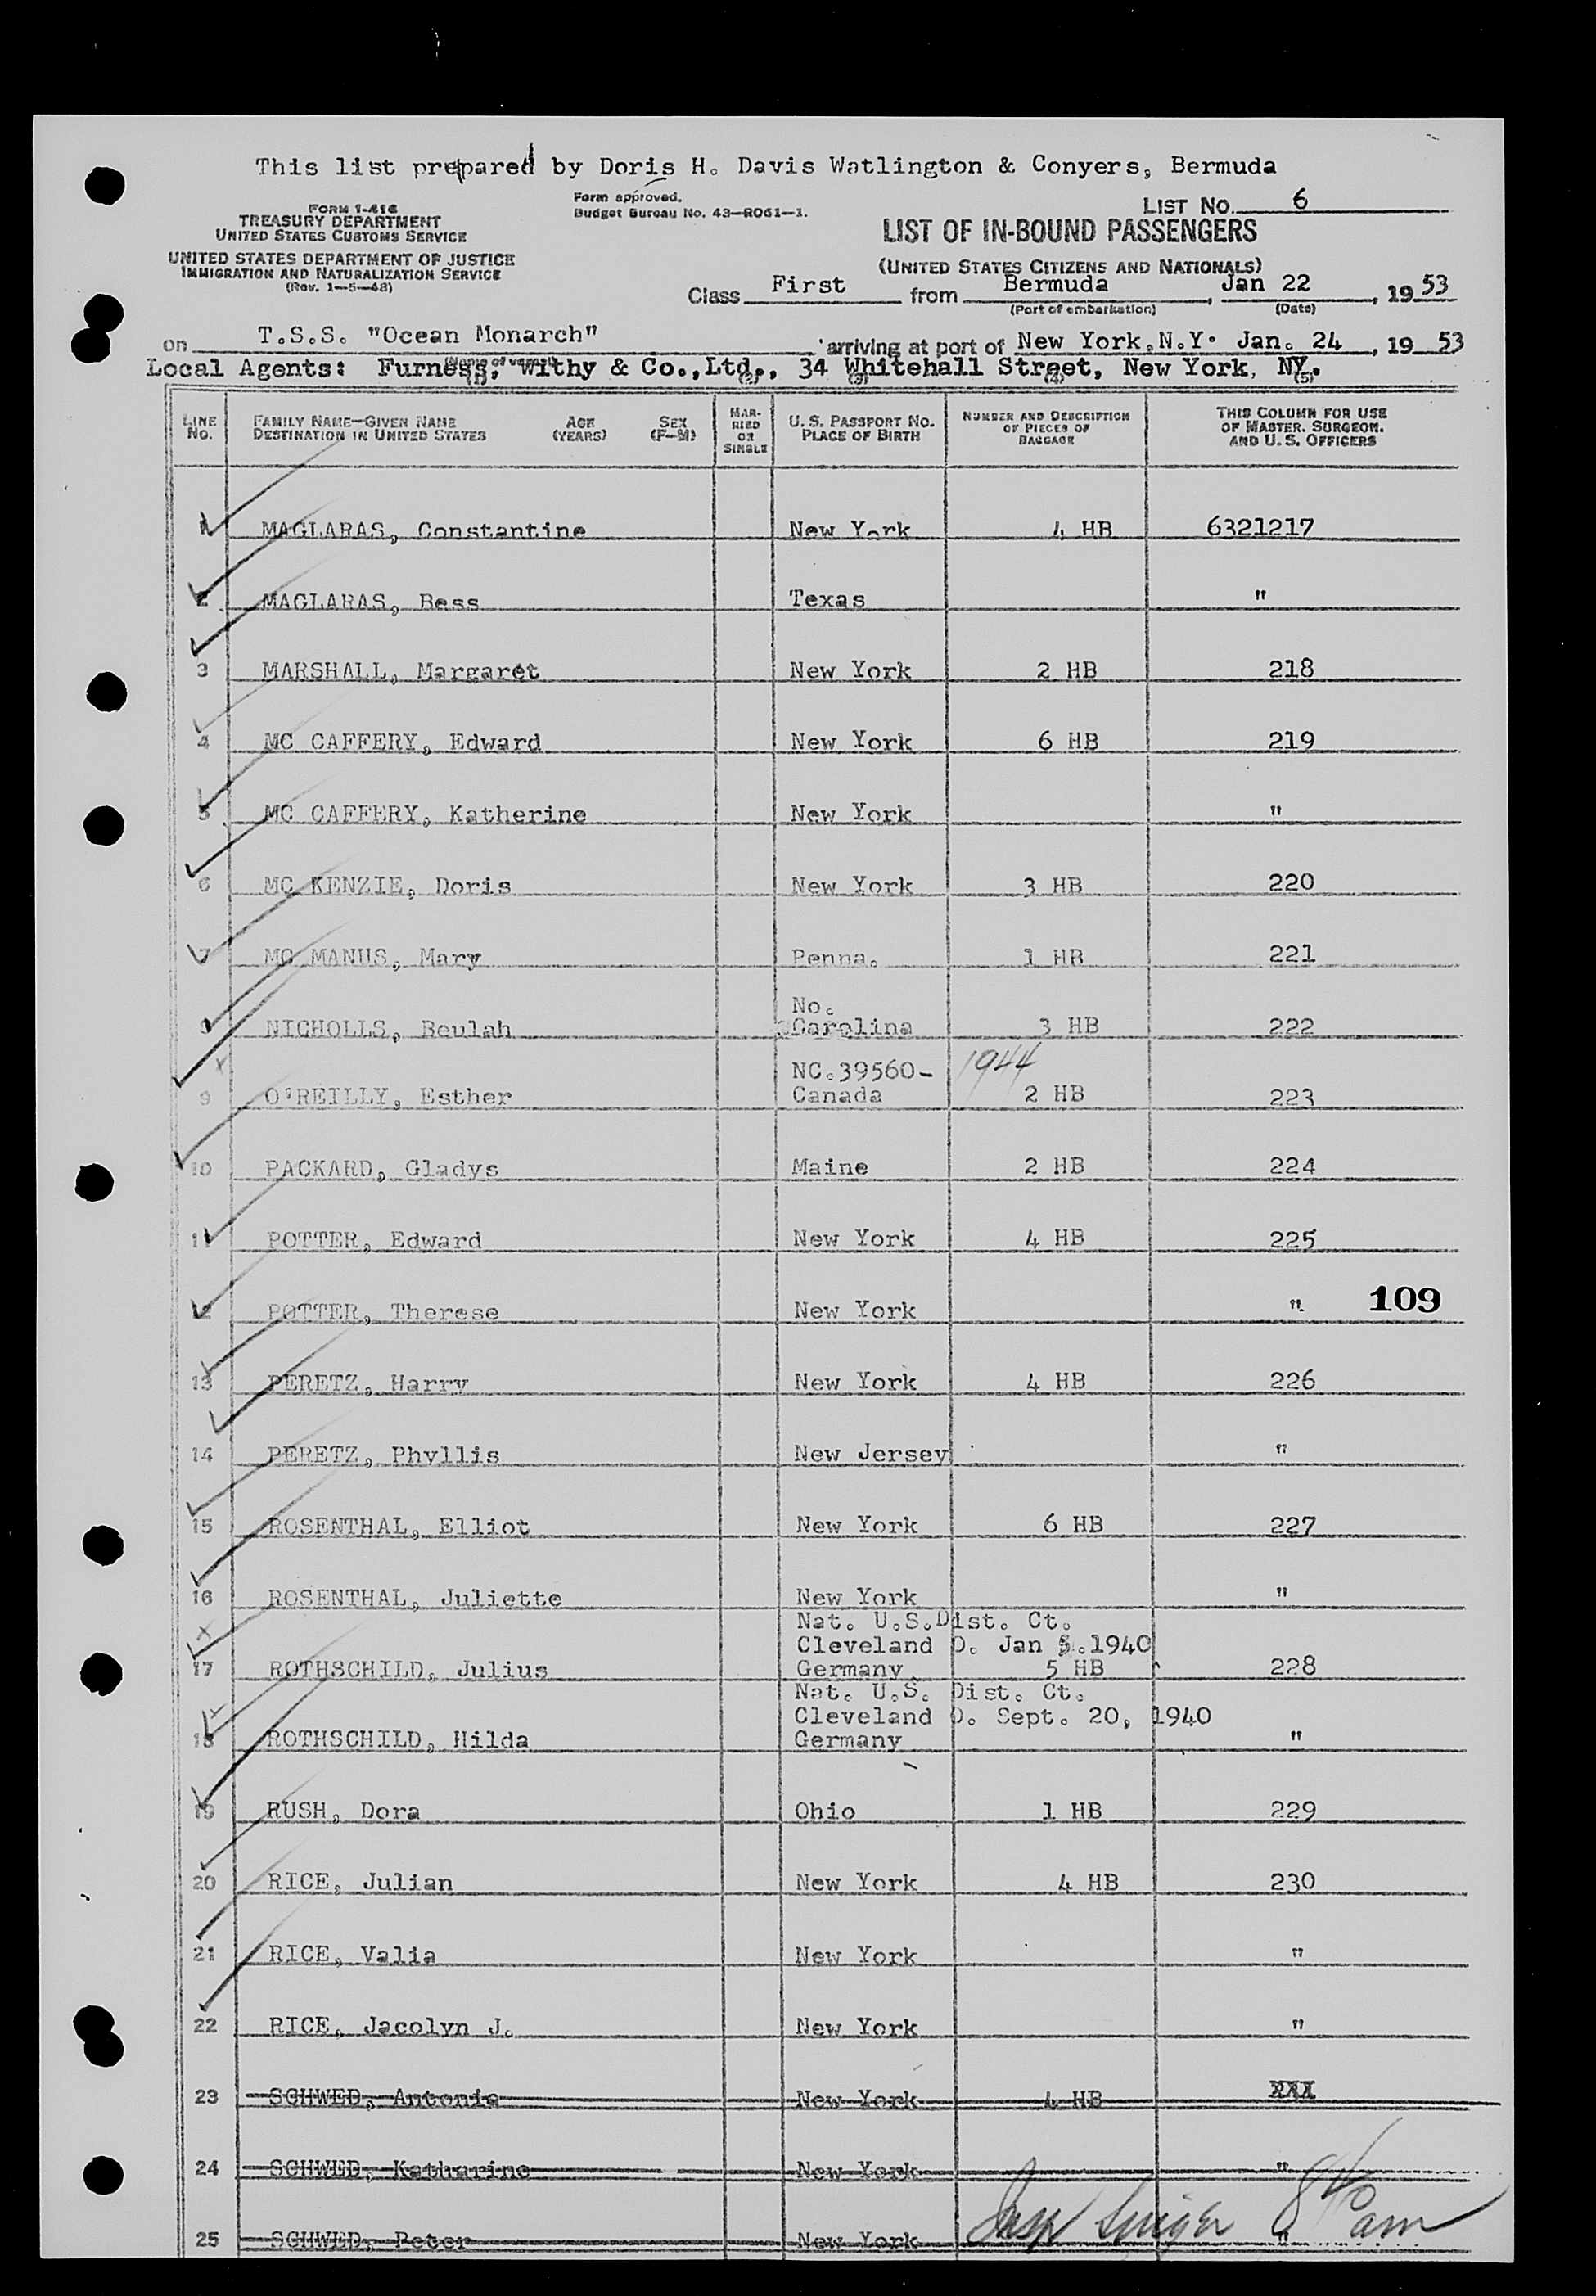 This list prepared by Doris H. Davis Watlington & Conyers, Bermuda
FORM I-416
TREASURY DEPARTMENT
UNITED STATES CUSTOMS SERVICE
UNITED STATES DEPARTMENT OF JUSTICE
IMMIGRATION AND NATURALIZATION SERVICE
(Rev. 1-5-48)
Form approved.
Budget Bureau No. 43-R061-1.
LIST NO. 6
LIST OF IN-BOUND PASSENGERS
(UNITED STATES CITIZENS AND NATIONALS)
Class First from Bermuda, Jan 22, 1953
(Port of embarkation) (Date)
on T.S.S. "Ocean Monarch" arriving at port of New York, N.Y. Jan. 24, 19 53
(Name of vessel)
Local Agents: Furness, Withy & Co., Ltd., 34 Whitehall Street, New York, NY.
(1) (2) (3) (4) (5)
LINE NO. FAMILY NAME—GIVEN NAME DESTINATION IN UNITED STATES AGE (YEARS) SEX (F-M) MARRIED OR SINGLE U. S. PASSPORT NO. PLACE OF BIRTH NUMBER AND DESCRIPTION OF PIECES OF BAGGAGE THIS COLUMN FOR USE OF MASTER, SURGEON, AND U. S. OFFICERS
1 MAGLARAS, Constantine New York 4 HB 6321217
2 MAGLARAS, Bess Texas "
3 MARSHALL, Margaret New York 2 HB 218
4 MC CAFFERY, Edward New York 6 HB 219
5 MC CAFFERY, Katherine New York "
6 MC KENZIE, Doris New York 3 HB 220
7 MC MANUS, Mary Penna. 1 HB 221
No.
8 NICHOLLS, Beulah Carolina 3 HB 222
NC.39560- 1944
9 O'REILLY, Esther Canada 2 HB 223
10 PACKARD, Gladys Maine 2 HB 224
11 POTTER, Edward New York 4 HB 225
12 POTTER, Therese New York " 109
13 PERETZ, Harry New York 4 HB 226
14 PERETZ, Phyllis New Jersey "
15 ROSENTHAL, Elliot New York 6 HB 227
16 ROSENTHAL, Juliette New York "
Nat. U.S.Dist. Ct.
Cleveland O. Jan 5.1940
17 ROTHSCHILD, Julius Germany 5 HB 228
Nat. U.S. Dist. Ct.
Cleveland O. Sept. 20, 1940
18 ROTHSCHILD, Hilda Germany "
19 RUSH, Dora Ohio 1 HB 229
20 RICE, Julian New York 4 HB 230
21 RICE, Valia New York "
22 RICE, Jacolyn J. New York "
23 SCHWED, Antonia New York 4 HB
24 SCHWED, Katharine New York "
25 SCHWED, Peter New York "
Insp 840 am